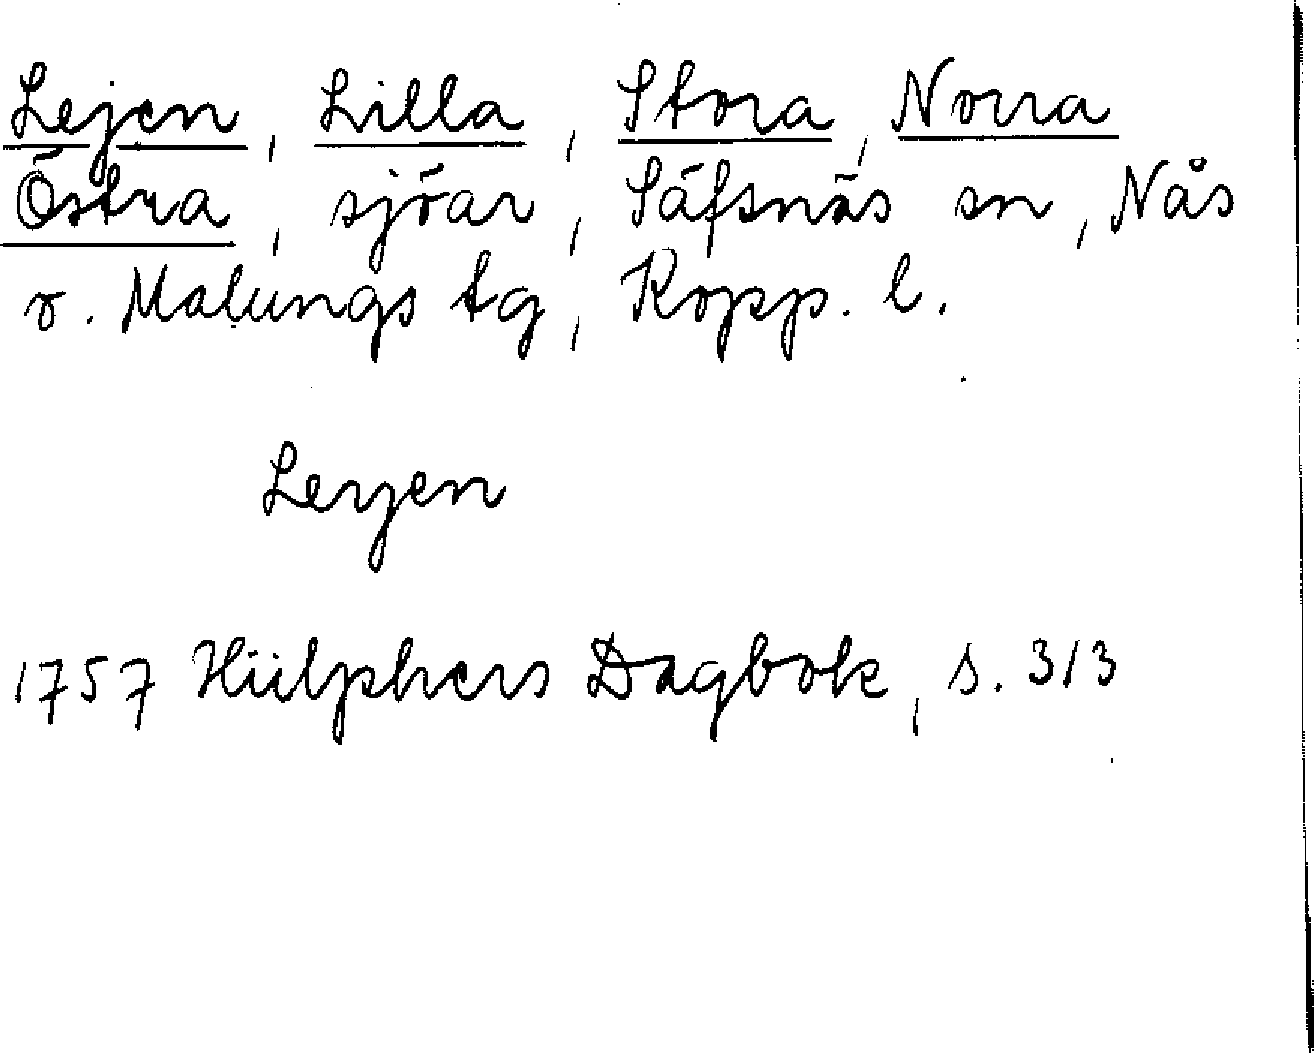 Lejen, Lilla, Stora, Norra
Östra, sjöar, Säfsnäs sn, Nås
o. Malungs tg, Kopp. l.
Leyen
1757 Hülphers Dagbok, s. 313